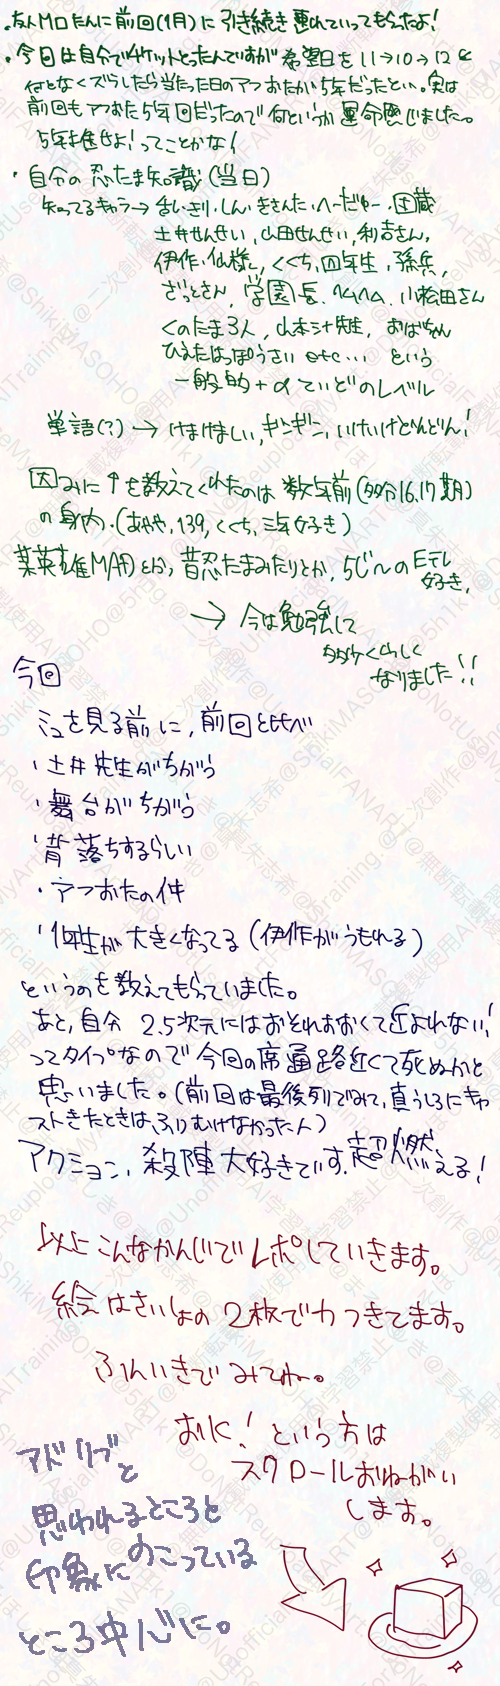 ・友人MロたんIに前回(1月)に引き続き連れていってもらったよ!
・今回は自分でチケットとったんですが希望日を11→10→12と
何となくズラしたら当たった日のアフおたが5年だったとい。実は
前回もアフおた5年回だったので何というか運命感じました。
5年推せよ!ってことかな!
・自分の忍たま知識(当日)
知ってるキャラ→乱・きり・しん・きさんた・へーだゆー・団蔵
土井せんせい,山田せんせい,利吉さん,
伊作,仙様,くくち,四年生,孫兵,
ざっとさん,学園長,ヘムヘム,小松田さん
くのたま3人,山本シナ先生,おばちゃん
ひえたはっぽうさい etc… という
一般的+αていどのレベル
単語(?)→けまけましい,ギンギン,いけいけどんどん!
因みに↑を教えてくれたのは数年前(多分16,17期)
の身内.(あやや,139,くくち,三年好き)
某英雄MADとか,昔忍たまみたりとか,5じ〜のEテレ
好き,
→今は勉強して
多少くわしく
なりました!!
今回
ミュを見る前に,前回と比べ
・土井先生がちがう
・舞台がちがう
・背落ちするらしい
・アフおたの件
・1年生が大きくなってる(伊作がうもれる)
というのを教えてもらっていました。
あと,自分 2.5次元にはおそれおおくて近よれない!
ってタイプなので今回の席通路近くて死ぬかと
思いました。(前回は最後列でみれて,真うしろにキャ
ストきたときは,ふりむけなかった人)
アクション,殺陣大好きです.超燃える!
以上こんなかんじでレポしていきます。
絵はさいしょの2枚で力つきてます。
ふんいきでみてねー。
おK!という方は
スクロールおねがい
します。
アドリブと
思われるところと
印象にのこっている
ところ中心に。